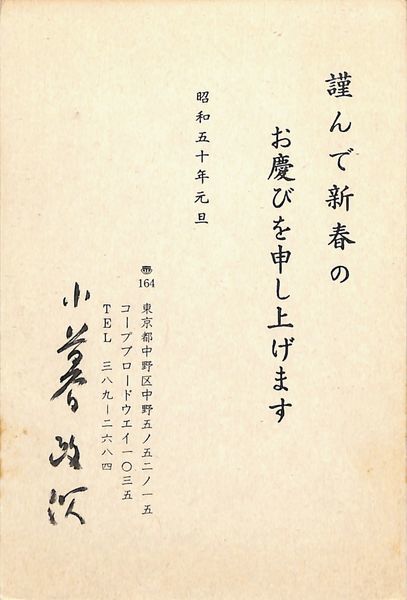 謹んで新春の
お慶びを申し上げます
昭和五十年元旦
〠164 東京都中野区中野五ノ五二ノ一五
コープブロードウエイ一〇三五
TEL 三八九ー二六八四
小暮政次